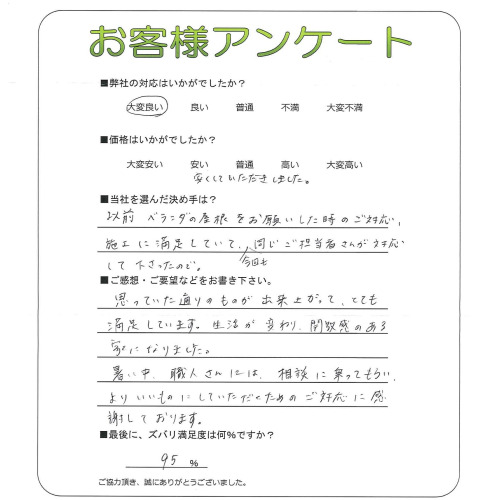 お客様アンケート
■弊社の対応はいかがでしたか?
大変良い 良い 普通 不満 大変不満
■価格はいかがでしたか?
大変安い 安い 普通 高い 大変高い
安くしていただきました。
■当社を選んだ決め手は?
以前 ベランダの屋根をお願いした時のご対応、
施工に満足していて、同じご担当者さんが対応
今回も
して下さったので。
■ご感想・ご要望などをお書き下さい。
思っていた通りのものが出来上がって、とても
満足しています。生活が変わり、開放感のある
家になりました。
暑い中、職人さんには、相談に乗ってもらい、
よりいいものにしていただくためのご対応に感
謝しております。
■最後に、ズバリ満足度は何%ですか?
95 %
ご協力頂き、誠にありがとうございました。